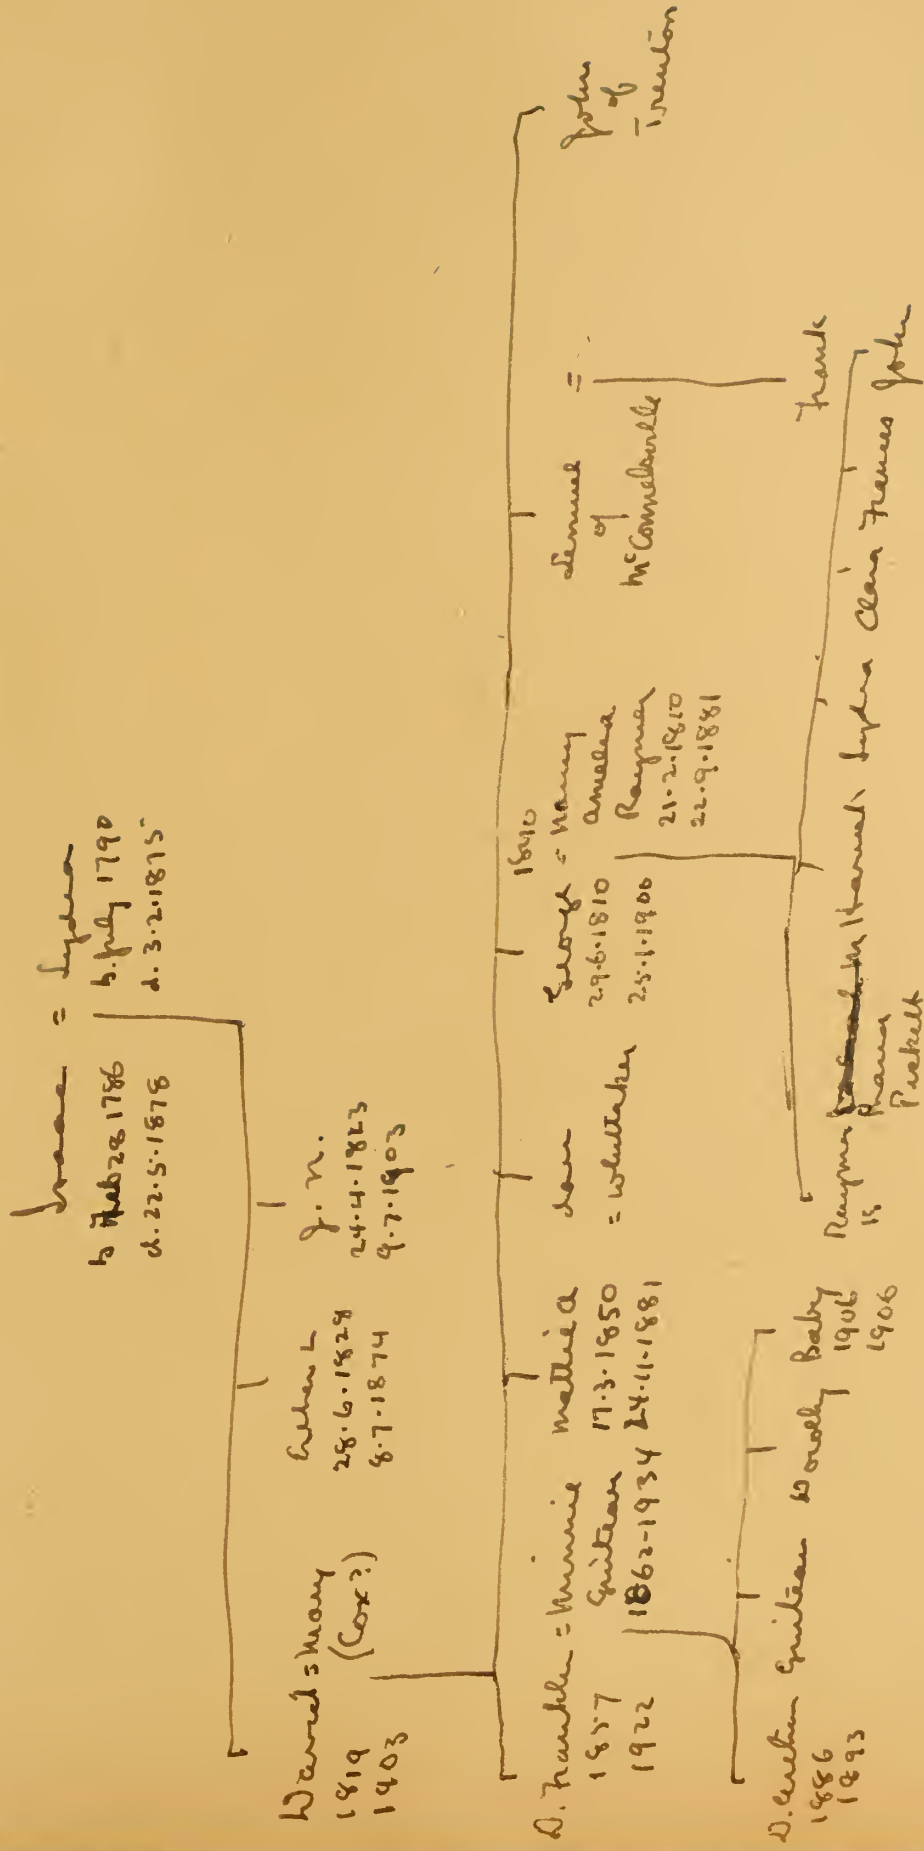 Isaac = Lydia
b Feb 28 1786
b. July 1790
d. 22.5.1878
d. 3.2.1875
David = Mary
(Cox?)
1819
1903
28.6.1829
8.7.1874
J. N.
24.4.1823
9.7.1903
D. Franklin = Minnie
Guiteau
1857
1922
1862-1934
Mattie A
17.3.1850
24.11.1881
= Whittaker
1840
George = Nancy
Amelia
Raymer
29.6.1810
25.1.1906
21.2.1810
22.9.1881
Lemuel =
of
McConnelsville
John
of
Trenton
D.
Guiteau
Dorothy
Baby
1886
1893
1906
1906
Raymer
Hannah
Lydia
Clara
Frances
John
Frank